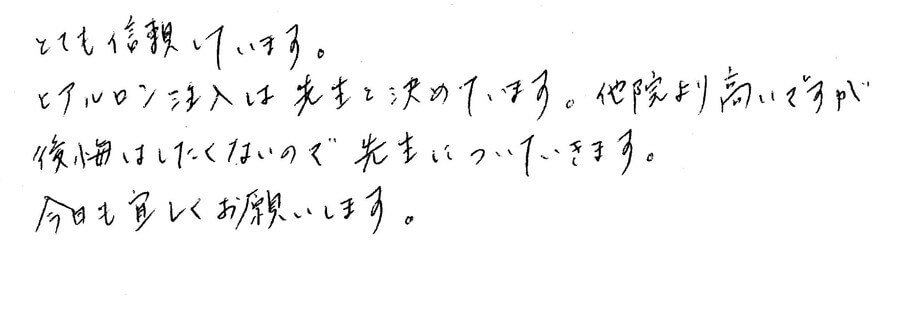 とても信頼しています。
ヒアルロン注入は先生と決めています。他院より高いですが
後悔はしたくないので先生についていきます。
今日も宜しくお願いします。